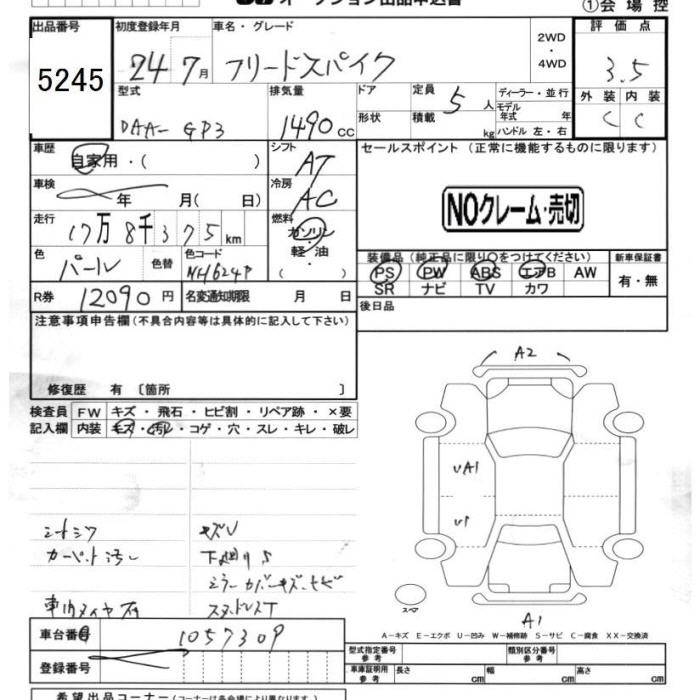 オークション出品申込書
①会場控
出品番号 初度登録年月 車名・グレード 2WD・4WD 評価点
5245 24 7月 フリードスパイク 3.5
型式 排気量 ドア 定員 5人 ディーラー・並行 外装 内装
DAA-GP3 1490cc 形状 積載 kg モデル年式 年 C C
ハンドル 左・右
車歴 自家用・( ) シフト AT セールスポイント (正常に機能するものに限ります)
車検 年 月( 日) 冷房 AC
NOクレーム・売切
走行 17万8千375km 燃料 ガソリン・軽油・( )
色 パール 色替 色コード NH624P 装備品(純正品に限り○をつけてください) 新車保証書
PS PW ABS エアB AW 有・無
SR ナビ TV カワ
R券 12090円 名変通知期限 月 日 後日品
注意事項申告欄(不具合内容等は具体的に記入して下さい)
修復歴 有 〔箇所 〕
検査員 FW キズ・飛石・ヒビ割・リペア跡・×要
記入欄 内装 キズ・汚れ・コゲ・穴・スレ・キレ・破レ
A2
UA1
U1
シートシワ キズU
カーペット汚れ 下廻りS
ミラーカバーキズ・ヒビ
車内タイヤ有 スタッドレスT
スペア
A1
A-キズ E-エクボ U-凹み W-補修跡 S-サビ C-腐食 XX-交換済
車台番号 1057309
登録番号
型式指定番号 参考 類別区分番号 参考
車庫証明用 参考 長さ cm 幅 cm 高さ cm
希望出品コーナー(コーナーは各会場により異なります)